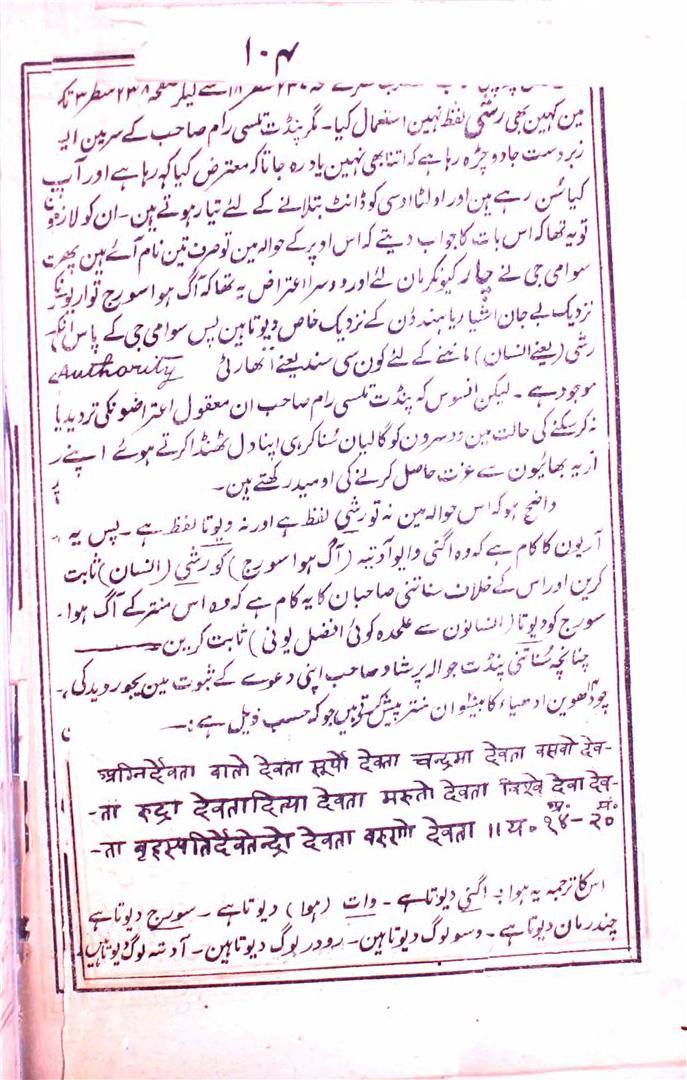 ۱۰۴
سے لیکر صفحہ ۲۳۸ سطر ۳ تک
مین کہین بھی رشی لفظ نہین استعمال کیا۔ مگر پنڈت تلسی رام صاحب کے سر مین ایسا
زبردست جادو چڑہ رہا ہے کہ اتنا بھی نہین یاد رہ جاتا کہ معترض کیا کہہ رہا ہے اور آپ
کیا سُن رہے ہین اور اولٹا اوسی کو ڈانٹ بتلانے کے لئے تیار ہوتے ہین۔ ان کو لازم
تو یہ تھا کہ اس بات کا جواب دیتے کہ اس اوپر کے حوالہ مین تو صرف تین نام آئے ہین پھر
سوامی جی نے چار کیونکر مان لئے اور دوسرا اعتراض یہ تھا کہ آگ ہوا سورج تو آریونکے
نزدیک بے جان اشیا ریا ہندؤن کے نزدیک خاص دیوتا ہین پس سوامی جی کے پاس انکے
رشی (یعنے انسان) ماننے کے لئے کون سی سند یعنے اتھارٹی Authority
موجود ہے ۔ لیکن افسوس کہ پنڈت تلسی رام صاحب ان معقول اعتراضونکی تردید یا
نہ کر سکنے کی حالت مین دوسرون کو گالیان سُنا کر ہی اپنا دل ٹھنڈا کرتے ہوئے اپنے
آریہ بھائیون سے عزت حاصل کرنے کی اومید رکھتے ہین۔
واضح ہو کہ اس حوالہ مین نہ تو رشی لفظ ہے اور نہ دیوتا لفظ ہے ۔ پس یہ
آریون کا کام ہے کہ وہ اگنی وایو آدتیہ (آگ ہوا سورج) کو رشی (انسان) ثابت
کرین اور اس کے خلاف سناتنی صاحبان کا یہ کام ہے کہ وہ اس منتر کے آگ ہوا۔
سورج کو دیوتا (انسانون سے علحدہ کوئی افضل یونی) ثابت کرین۔
چنانچہ سناتنی پنڈت جوالہ پرشاد صاحب اپنی دعوے کے ثبوت مین یجور وید کی
چودھوین ادھیاء کا بیسوان منتر پیش کرتے ہین جو کہ حسب ذیل ہے:۔
अग्निर्देवता वातो देवता सूर्यो देवता चन्द्रमा देवता वसवो देव-
-ता रुद्रा देवतादित्या देवता मरुतो देवता विश्वे देवा देव-
-ता बृहस्पतिर्देवतेन्द्रो देवता वरुणो देवता ॥ य॰ अ॰ १४ - मं॰ २०
اس کا ترجمہ یہ ہوا :۔ اگنی دیوتا ہے ۔ وات (ہوا) دیوتا ہے ۔ سورج دیوتا ہے
چندرمان دیوتا ہے ۔ وسو لوگ دیوتا ہین ۔ رودر لوگ دیوتا ہین ۔ آدتیہ لوگ دیوتا ہین